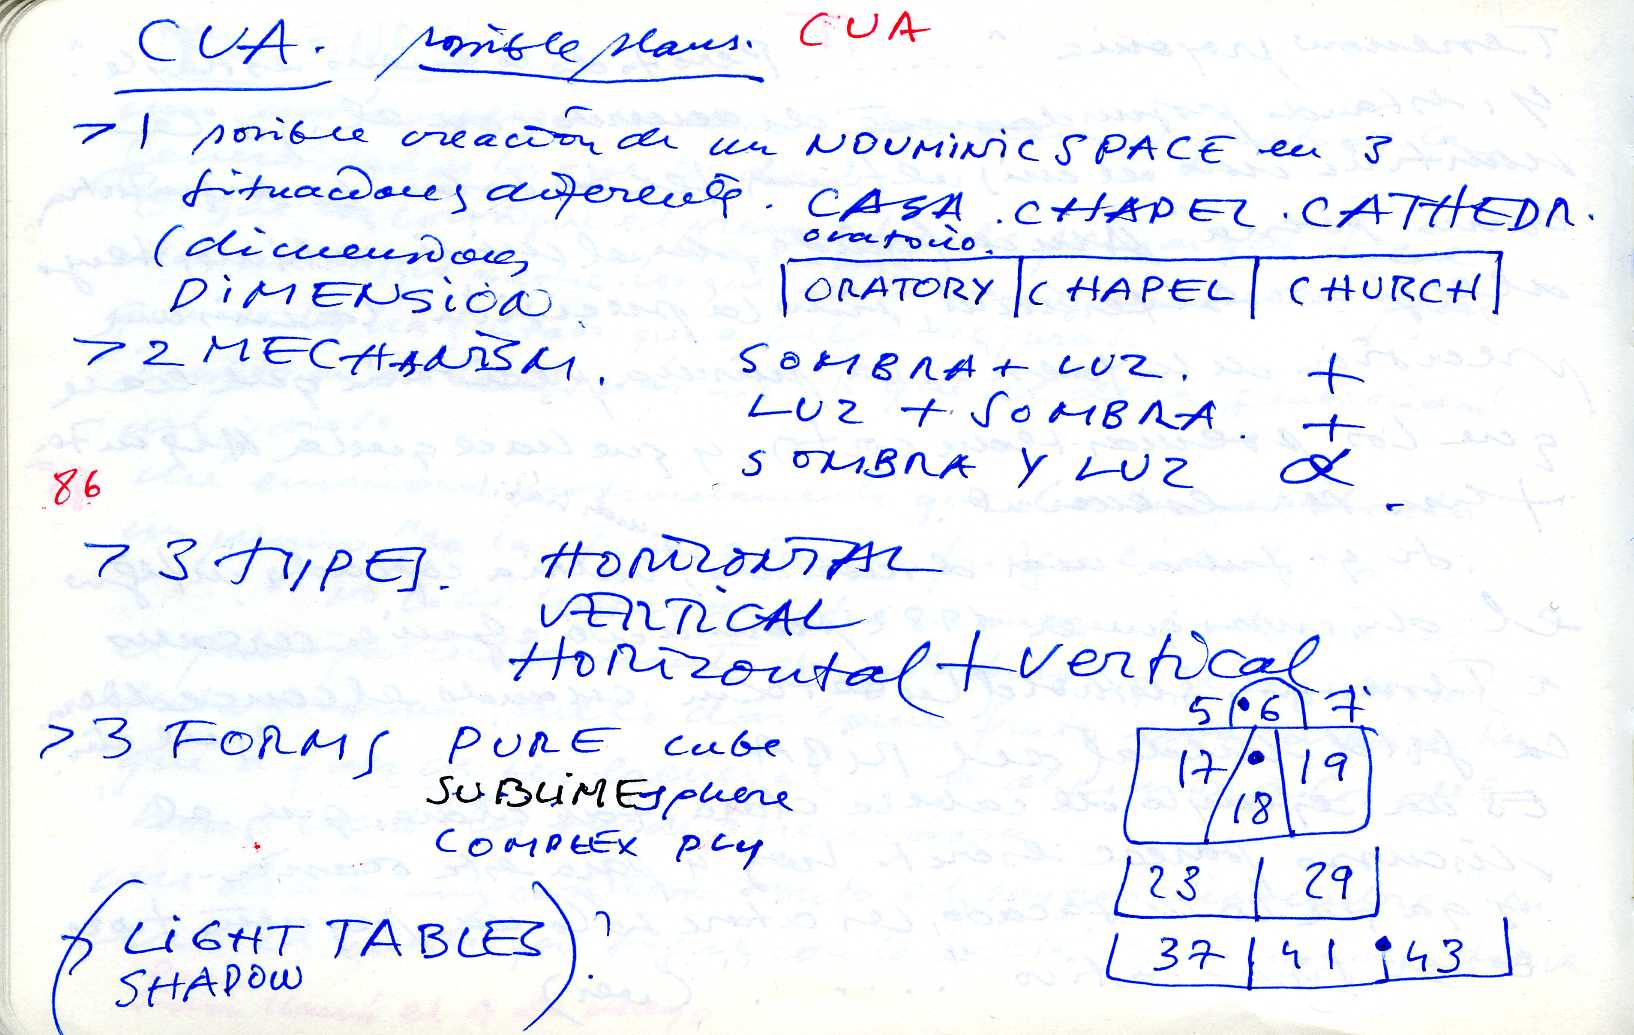 CUA. posible plans. CUA
>1 posible creación de un NOUMINIC SPACE en 3
situaciones diferente. CASA. CHAPEL. CATHEDR.
oratorio.
(dimensiones ORATORY | CHAPEL | CHURCH
DIMENSIÓN
>2 MECHANISM. SOMBRA + LUZ. +
LUZ + SOMBRA. +
SOMBRA Y LUZ α
86
>3 TYPES. HORIZONTAL
VERTICAL
HORIZontal + vertical
5 6 7
>3 FORMS PURE cube 17 19
SUBLIME sphere 18
COMPLEX PLY
23 29
(LIGHT TABLES)?
37 41 43
SHADOW